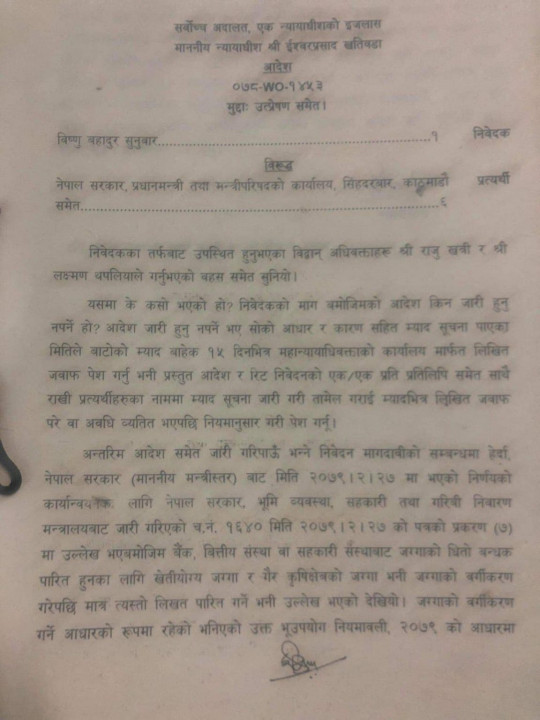 सर्वोच्च अदालत, एक न्यायाधीशको इजलास
माननीय न्यायाधीश श्री ईश्वरप्रसाद खतिवडा
आदेश
०७८-WO-१४५३
मुद्दाः उत्प्रेषण समेत।
विष्णु बहादुर सुनुवार.......................................................१ निवेदक
विरूद्ध
नेपाल सरकार, प्रधानमन्त्री तथा मन्त्रीपरिषदको कार्यालय, सिंहदरबार, काठमाडौं प्रत्यर्थी
समेत.......................................................................६
निवेदकका तर्फबाट उपस्थित हुनुभएका विद्वान् अधिवक्ताहरू श्री राजु खत्री र श्री
लक्ष्मण थपलियाले गर्नुभएको बहस समेत सुनियो।
यसमा के कसो भएको हो? निवेदकको माग बमोजिमको आदेश किन जारी हुनु
नपर्ने हो? आदेश जारी हुनु नपर्ने भए सोको आधार र कारण सहित म्याद सूचना पाएका
मितिले बाटोको म्याद बाहेक १५ दिनभित्र महान्यायाधिवक्ताको कार्यालय मार्फत लिखित
जवाफ पेश गर्नु भनी प्रस्तुत आदेश र रिट निवेदनको एक/एक प्रति प्रतिलिपि समेत साथै
राखी प्रत्यर्थीहरुका नाममा म्याद सूचना जारी गरी तामेल गराई म्यादभित्र लिखित जवाफ
परे वा अवधि व्यतित भएपछि नियमानुसार गरी पेश गर्नू।
अन्तरिम आदेश समेत जारी गरिपाऊँ भन्ने निवेदन मागदावीको सम्बन्धमा हेर्दा,
नेपाल सरकार (माननीय मन्त्रीस्तर) बाट मिति २०७९।२।२७ मा भएको निर्णयको
कार्यान्वयनका लागि नेपाल सरकार, भूमि व्यवस्था, सहकारी तथा गरिवी निवारण
मन्त्रालयबाट जारी गरिएको च.नं. १६४० मिति २०७९।२।२७ को पत्रको प्रकरण (७)
मा उल्लेख भएबमोजिम बैंक, वित्तीय संस्था वा सहकारी संस्थाबाट जग्गाको धितो बन्धक
पारित हुनका लागि खेतीयोग्य जग्गा र गैर कृषिक्षेत्रको जग्गा भनी जग्गाको वर्गीकरण
गरेपछि मात्र त्यस्तो लिखत पारित गर्ने भनी उल्लेख भएको देखियो। जग्गाको वर्गीकरण
गर्ने आधारको रूपमा रहेको भनिएको उक्त भूउपयोग नियमावली, २०७९ को आधारमा